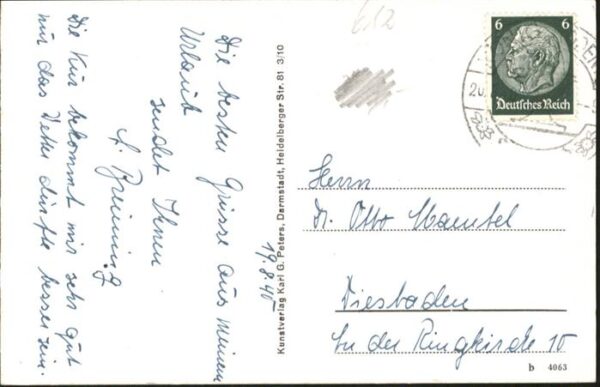 Die besten Grüsse aus meinem
Urlaub
sendet Ihnen
Die Kur bekommt mir sehr gut
nur das Wetter dürfte besser sein.
19.8.40
Kunstverlag Karl G. Peters, Darmstadt, Heidelberger Str. 81 3/10
612
6 6
Deutsches Reich
20.
Herrn
Dr. Otto
Wiesbaden
An der Ringkirche 10
b 4063